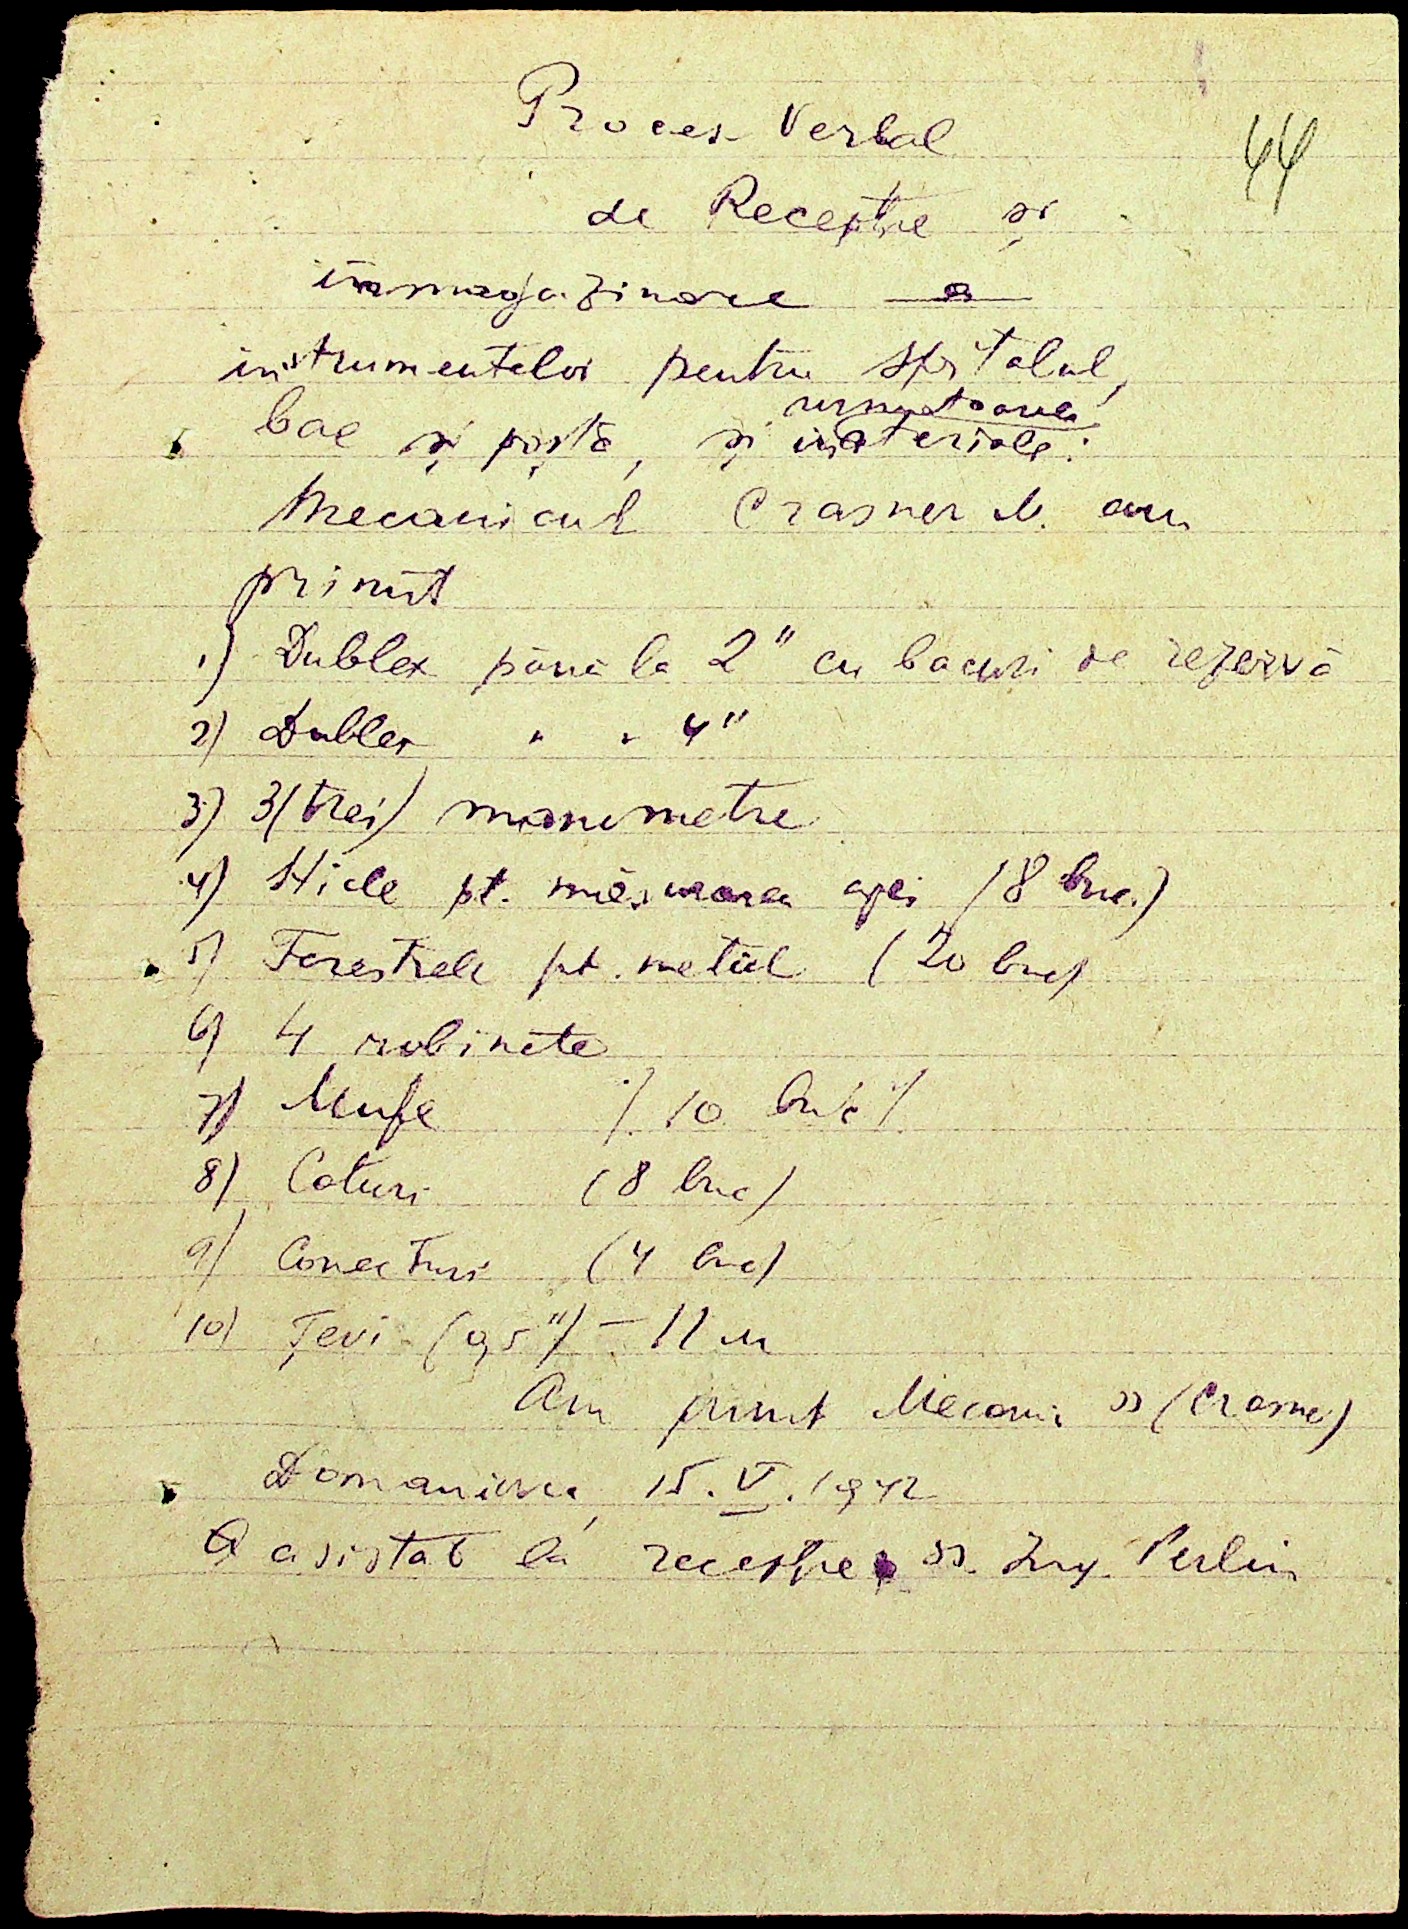 Proces Verbal
44
de Recepție și
inmagazinare a
instrumentelor pentru spitalul,
urmatoarele
bae și poștă, și materiale:
Mecanicul Crasner M. am
primit
1) Dublex până la 2" cu bacuri de rezervă
2) Dublex " " 4"
3) 3(trei) manometre
4) Sticle pt. măsurarea apei (8 buc.)
5) Ferestrele pt. metal (20 buc)
6) 4 robinete
7) Mufe (10 buc)
8) Coturi (8 buc)
9) Conecturi (4 buc)
10) Țevi (0,5") – 11 m
Am primit Mecanic ss (Crasner)
Domaniovca, 15.V.1942
A asistat la recepție ss. Ing. Perlin